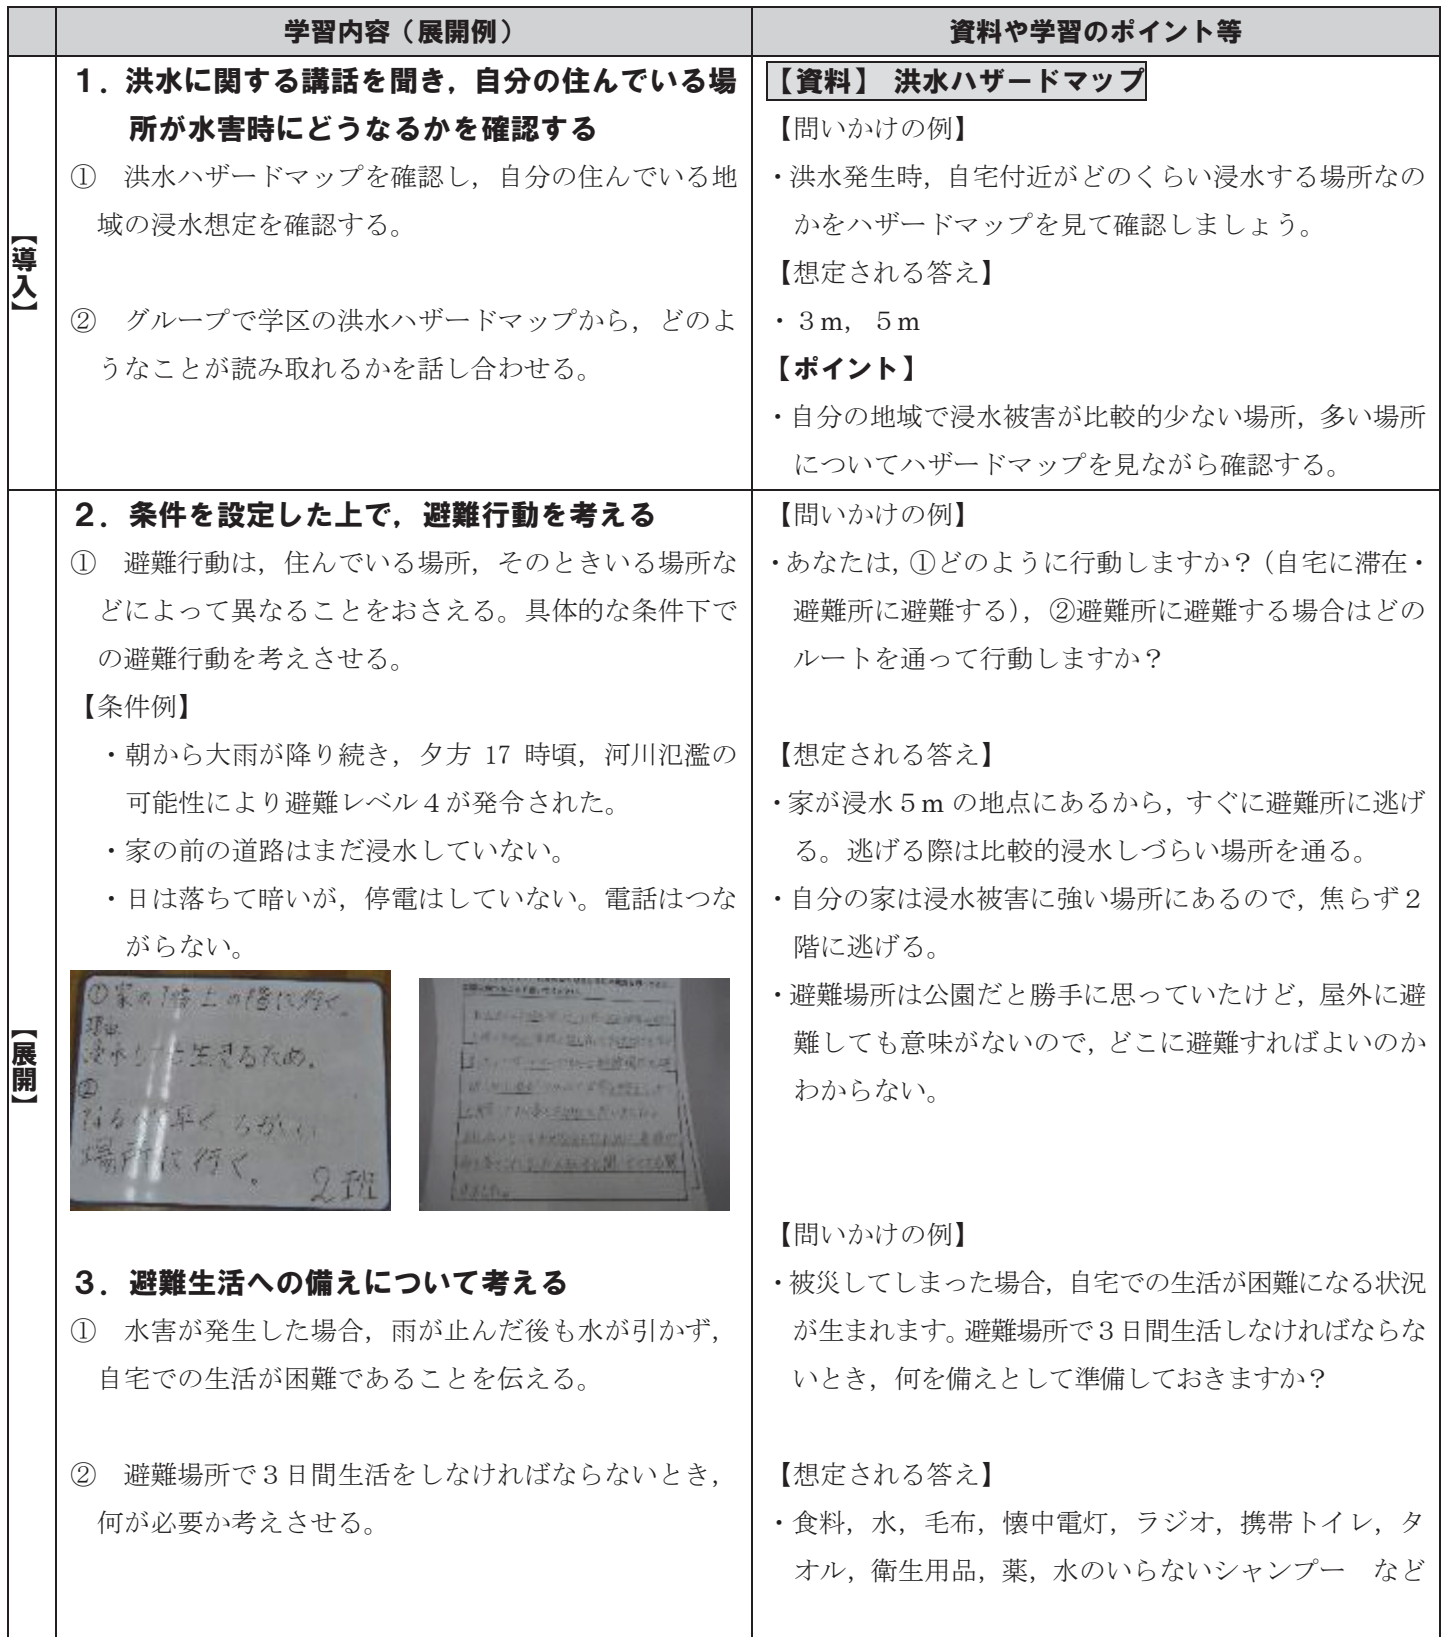 学習内容（展開例）
資料や学習のポイント等
【導入】
１．洪水に関する講話を聞き，自分の住んでいる場
所が水害時にどうなるかを確認する
①　洪水ハザードマップを確認し，自分の住んでいる地
域の浸水想定を確認する。
②　グループで学区の洪水ハザードマップから，どのよ
うなことが読み取れるかを話し合わせる。
【資料】 洪水ハザードマップ
【問いかけの例】
・洪水発生時，自宅付近がどのくらい浸水する場所なの
かをハザードマップを見て確認しましょう。
【想定される答え】
・３ｍ，５ｍ
【ポイント】
・自分の地域で浸水被害が比較的少ない場所，多い場所
についてハザードマップを見ながら確認する。
【展開】
２．条件を設定した上で，避難行動を考える
①　避難行動は，住んでいる場所，そのときいる場所な
どによって異なることをおさえる。具体的な条件下で
の避難行動を考えさせる。
【条件例】
・朝から大雨が降り続き，夕方 17 時頃，河川氾濫の
可能性により避難レベル４が発令された。
・家の前の道路はまだ浸水していない。
・日は落ちて暗いが，停電はしていない。電話はつな
がらない。
①家の1番上の階に行く。
理由
浸水しても生きるため。
②
なるべく早く ちかい
場所に行く。 2班
３．避難生活への備えについて考える
①　水害が発生した場合，雨が止んだ後も水が引かず，
自宅での生活が困難であることを伝える。
②　避難場所で３日間生活をしなければならないとき，
何が必要か考えさせる。
【問いかけの例】
・あなたは，①どのように行動しますか？（自宅に滞在・
避難所に避難する），②避難所に避難する場合はどの
ルートを通って行動しますか？
【想定される答え】
・家が浸水５ｍの地点にあるから，すぐに避難所に逃げ
る。逃げる際は比較的浸水しづらい場所を通る。
・自分の家は浸水被害に強い場所にあるので，焦らず２
階に逃げる。
・避難場所は公園だと勝手に思っていたけど，屋外に避
難しても意味がないので，どこに避難すればよいのか
わからない。
【問いかけの例】
・被災してしまった場合，自宅での生活が困難になる状況
が生まれます。避難場所で３日間生活しなければならな
いとき，何を備えとして準備しておきますか？
【想定される答え】
・食料，水，毛布，懐中電灯，ラジオ，携帯トイレ，タ
オル，衛生用品，薬，水のいらないシャンプー　など